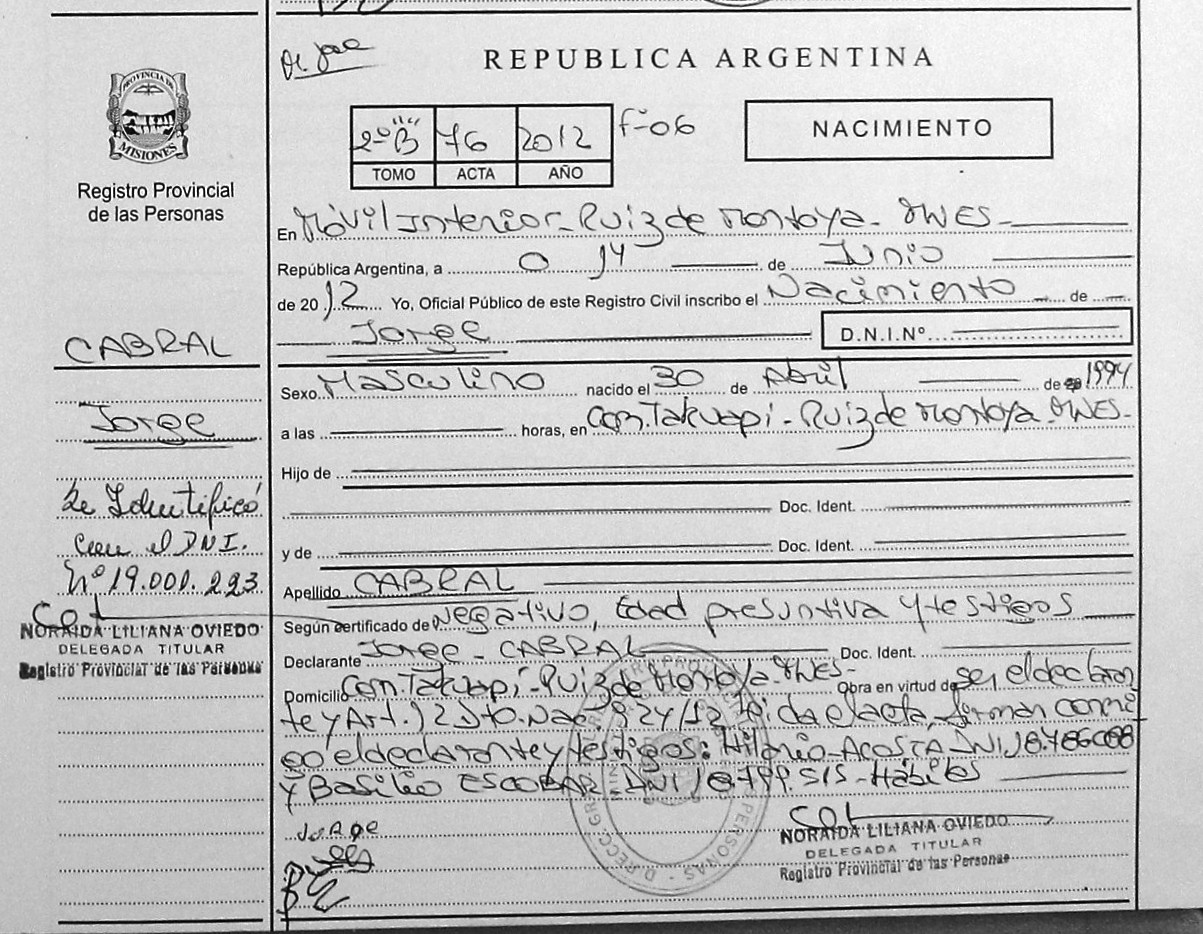 PROVINCIA DE
MISIONES
Registro Provincial
de las Personas
CABRAL
Jorge
Se Identificó
con el DNI.
Nº 19.001.223
NORAIDA LILIANA OVIEDO
DELEGADA TITULAR
Registro Provincial de las Personas
REPUBLICA ARGENTINA
2º B 76 2012 F-06
TOMO ACTA AÑO
NACIMIENTO
En Móvil Interior - Ruiz de Montoya - MNES -
República Argentina, a 14 de Junio
de 2012 Yo, Oficial Público de este Registro Civil inscribo el Nacimiento de
Jorge D.N.I.Nº
Sexo Masculino nacido el 30 de Abril de 1994
a las horas, en Com. Takuapi - Ruiz de Montoya MNES -
Hijo de
Doc. Ident.
y de Doc. Ident.
Apellido CABRAL
Según certificado de Negativo, Edad presuntiva y testigos
Declarante Jorge - CABRAL Doc. Ident.
Domicilio Com. Takuapi - Ruiz de Montoya - MNES - Obra en virtud de ser el declaran
te y Art. 12 Dto. Nac. 278/12 leida el acta, firman conmi
go el declarante y testigos: Hilario ACOSTA DNI
y Basilio ESCOBAR - DNI 18.799.515 - Hábiles
Jorge
NORAIDA LILIANA OVIEDO
DELEGADA TITULAR
Registro Provincial de las Personas